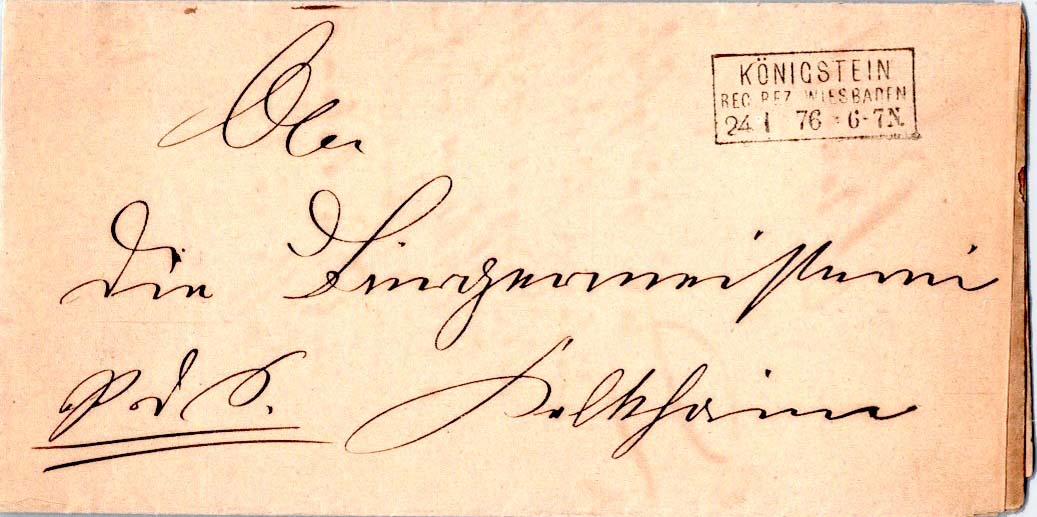 An
KÖNIGSTEIN
REG. BEZ. WIESBADEN
24 1 76 6-7N.
die Bürgermeisterei
p. d. S. Kelkheim